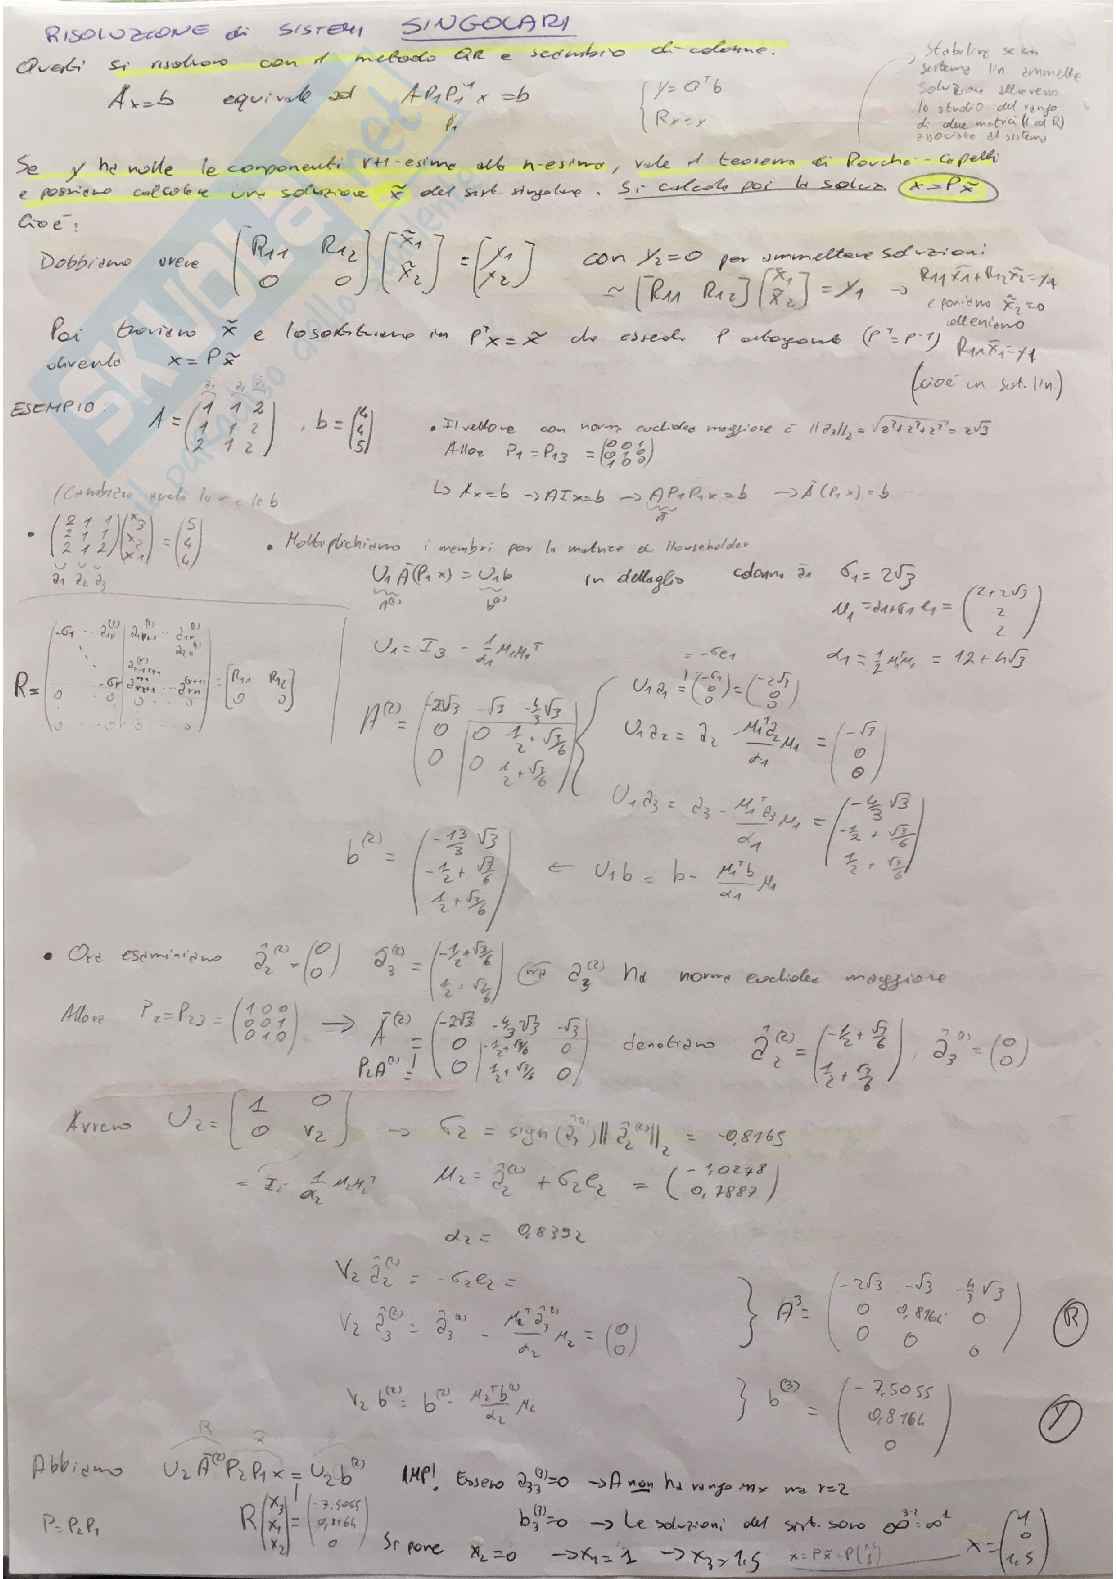 RISOLUZIONE di SISTEMI SINGOLARI
Questi si risolvono con il metodo QR e scambio di colonne.
Ax=b equivale ad AP₁P₁⁻¹x=b
P₁
{ y=Qᵀb
Rx=y
Stabilire se un
sistema lin ammette
soluzione attraverso
lo studio del rango
di due matrici
associate al sistema
Se y ha nulle le componenti r+1-esima alla n-esima, vale il teorema di Rouché-Capelli
e possiamo calcolare una soluzione x̃ del sist. singolare. Si calcola poi la soluz. x=Px̃
Cioè:
Dobbiamo avere [R₁₁ R₁₂; 0 0] [x̃₁; x̃₂] = [y₁; y₂] con y₂=0 per ammettere soluzioni
≃ [R₁₁ R₁₂] [x̃₁; x̃₂] = y₁ → R₁₁x̃₁+R₁₂x̃₂=y₁
e poniamo x̃₂=0
otteniamo
R₁₁x̃₁=y₁
(cioè un sist. lin.)
Poi troviamo x̃ e lo sostituiamo in Pᵀx=x̃ che essendo P ortogonale (Pᵀ=P⁻¹)
diventa x=Px̃
ESEMPIO: A = (1 1 2; 1 1 2; 2 1 2), b = (4; 4; 5)
• Il vettore con norma euclidea maggiore è ||a₃||₂ = √2²+2²+2² = 2√3
Allora P₁=P₁₃ = (0 0 1; 0 1 0; 1 0 0)
↳ Ax=b → AIx=b → AP₁P₁x=b → Ā(P₁x)=b
Ā
• (2 1 1; 2 1 1; 2 1 2) (x₃; x₂; x₁) = (5; 4; 4)
a₁ a₂ a₃
• Moltiplichiamo i membri per la matrice di Householder
U₁Ā(P₁x)=U₁b in dettaglio colonna a₁ σ₁=2√3
A⁽²⁾ b⁽²⁾
μ₁=a₁+σ₁e₁ = (2+2√3; 2; 2)
U₁=I₃ − 1/α₁ μ₁μ₁ᵀ
α₁=1/2 μ₁ᵀμ₁ = 12+4√3
= −σe₁
R= = [R₁₁ R₁₂; 0 0]
A⁽²⁾ = (−2√3 −√3 −4/3√3; 0 0 1/2+√3/6; 0 0 1/2+√3/6)
U₁a₁ = (−σ₁; 0; 0) = (−2√3; 0; 0)
U₁a₂ = a₂ μ₁ᵀa₂/α₁ μ₁ = (−√3; 0; 0)
U₁a₃ = a₃ − μ₁ᵀa₃/α₁ μ₁ = (−4/3√3; −1/2+√3/6; 1/2+√3/6)
b⁽²⁾ = (−13/3√3; −1/2+√3/6; 1/2+√3/6) ← U₁b = b − μ₁ᵀb/α₁ μ₁
• Ora esaminiamo â₂⁽²⁾ = (0; 0) â₃⁽²⁾ = (−1/2+√3/6; 1/2+√3/6) ma â₃⁽²⁾ ha norma euclidea maggiore
Allora P₂=P₂₃ = (1 0 0; 0 0 1; 0 1 0) ⇒ Ā⁽²⁾ = (−2√3 −4/3√3 −√3; 0 −1/2+√3/6 0; 0 1/2+√3/6 0) denotiamo â₂⁽²⁾ = (−1/2+√3/6; 1/2+√3/6), â₃⁽²⁾ = (0; 0)
P₂A⁽²⁾
Avremo U₂ = [1 0; 0 V₂] → σ₂ = sign(â₂⁽²⁾)||â₂⁽²⁾||₂ = −0,8165
= I− 1/α₂ μ₂μ₂ᵀ μ₂ = â₂⁽²⁾ + σ₂e₂ = (−1,0278; 0,7887)
α₂ = 0,8392
V₂â₂⁽²⁾ = −σ₂e₂ =
V₂â₃⁽²⁾ = â₃⁽²⁾ − μ₂ᵀâ₃⁽²⁾/α₂ μ₂ = (0; 0)
} A³ = (−2√3 −√3 −4/3√3; 0 0,8164 0; 0 0 0) R
V₂b⁽²⁾ = b⁽²⁾ − μ₂ᵀb⁽²⁾/α₂ μ₂ } b⁽³⁾ = (−7,5055; 0,8164; 0) Y
Abbiamo U₂Ā⁽²⁾P₂P₁x = U₂b⁽²⁾ IMP! Essero a₃₃⁽³⁾=0 → A non ha rango mx ma r=2
P=P₂P₁ R(x₃; x₁; x₂) = (−7.5055; 0,8164; 0) b₃⁽³⁾=0 → Le soluzioni del sist. sono ∞³⁻²=∞¹
Si pone x₂=0 → x₁=1 → x₃=1,5 x = (1; 0; 1,5)
SKUOLA.net
il paradiso dello studente